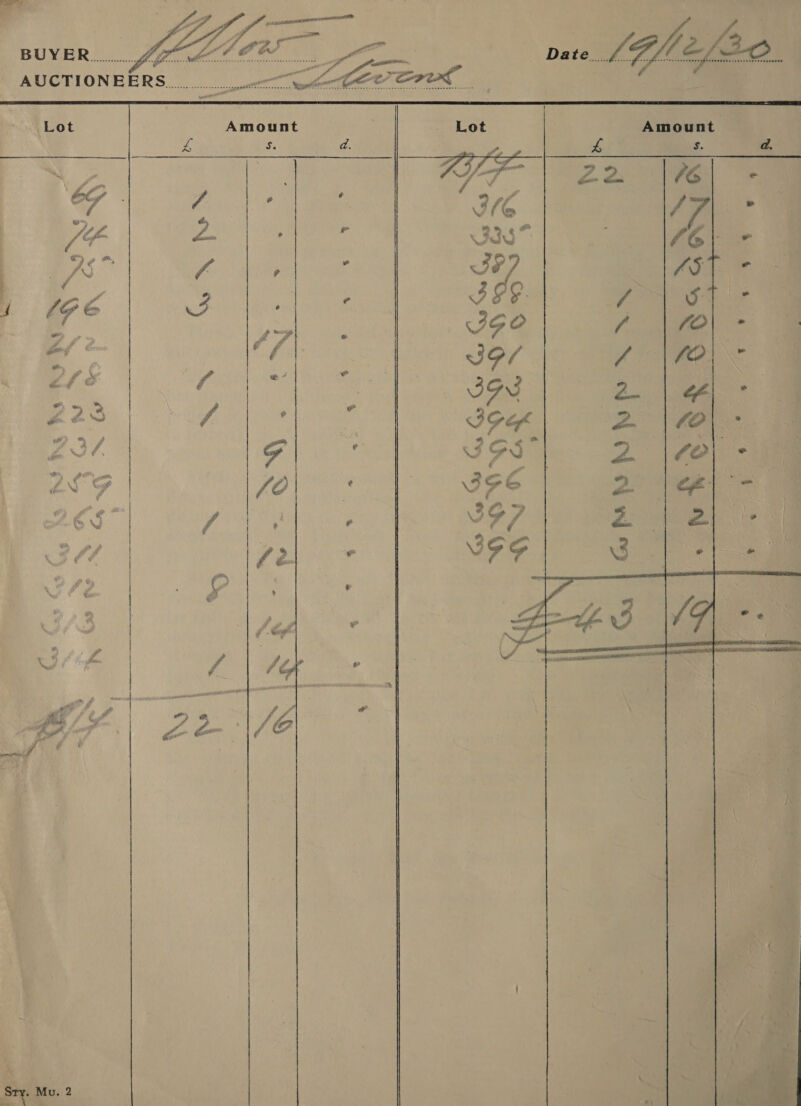 BUYER
Date 19/12/30
AUCTIONEERS Stevens
Lot Amount Lot Amount
£ s. d. £ s. d.
B/F 22 16 -
69 1 - - 316 17 -
74 2 - - 335 16 -
75 1 - - 387 15 -
196 3 - - 388 1 5 -
212 17 - 390 1 10 -
218 1 - - 391 1 10 -
223 1 - - 393 2 4 -
231 9 - 394 2 10 -
259 10 - 395 2 10 -
265 1 - - 396 2 4 -
311 12 - 397 2 2 -
312 8 - - 399 3 - -
313 14 - £43 19 -
314 1 14 -
B/F 22 16 -
Sty. Mu. 2